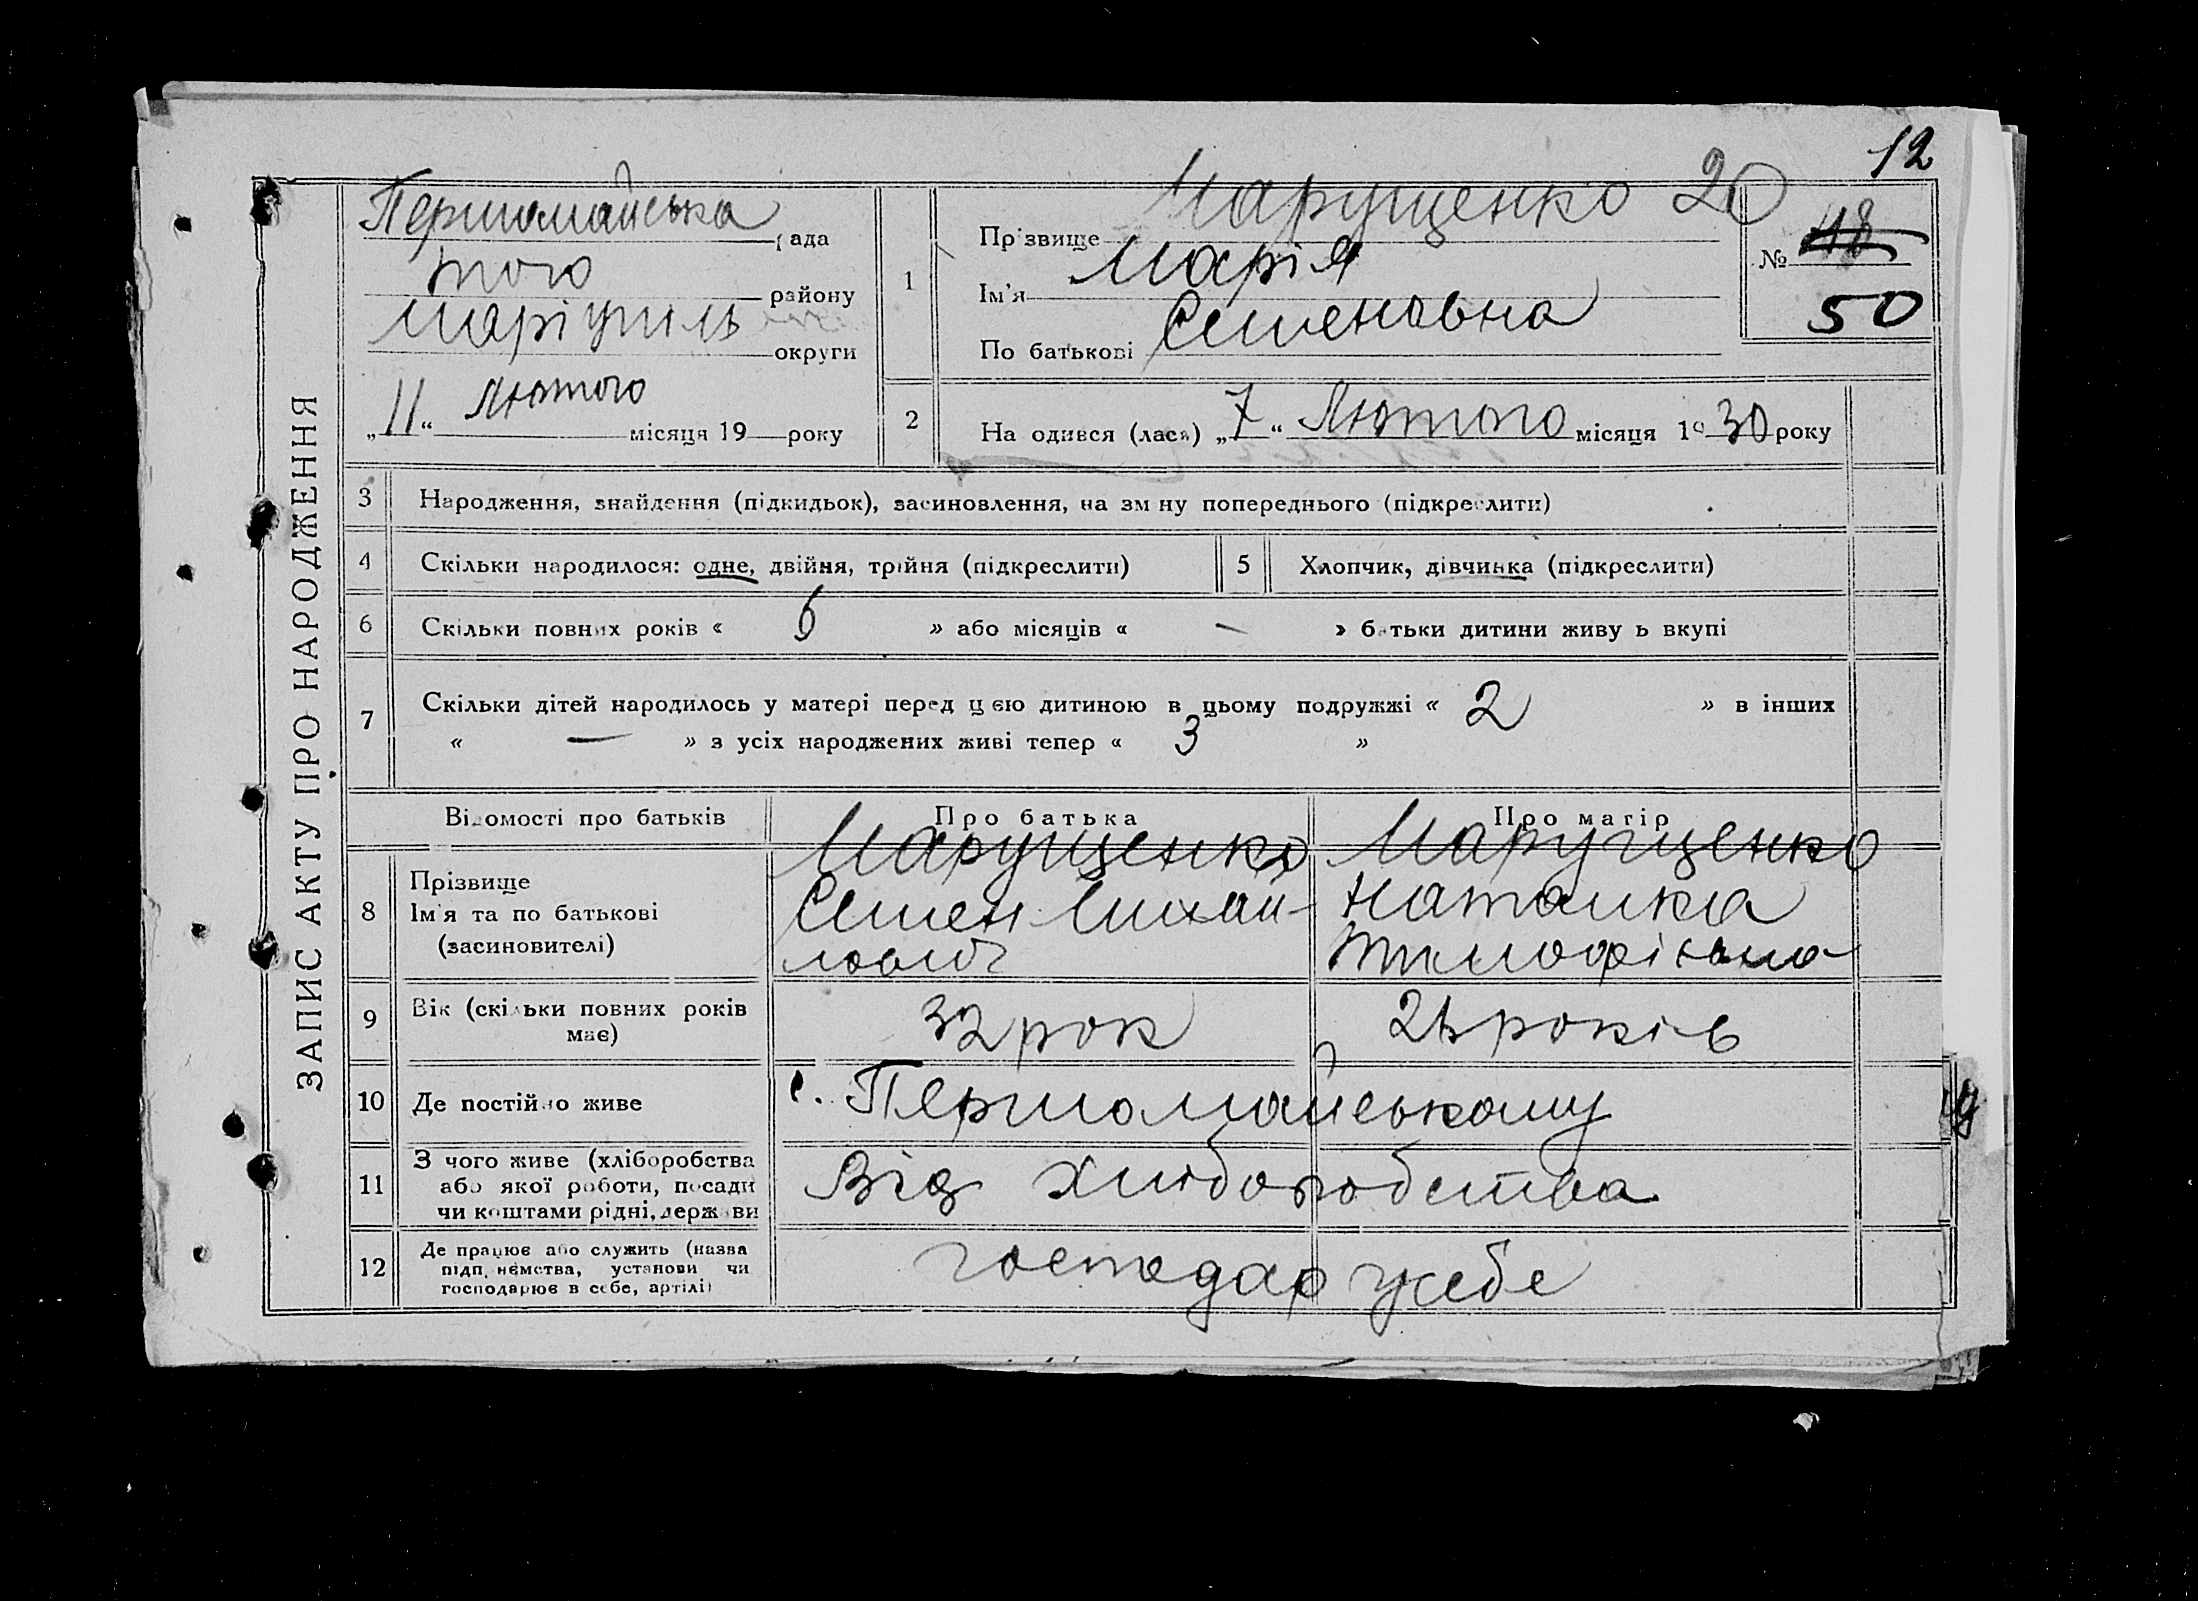 12
ЗАПИС АКТУ ПРО НАРОДЖЕННЯ
Першомайська рада
того району
Маріупіль округи
„11“ Лютого місяця 19 року
1
Прізвище Марущенко 20
Ім'я Марія
По батькові Семеновна
№ 48
50
2
На одився (лася) „7“ Лютого місяця 19 30 року
3 Народження, знайдення (підкидьок), засиновлення, на зм ну попереднього (підкреслити)
4 Скільки народилося: одне, двійня, трійня (підкреслити)
5 Хлопчик, дівчинка (підкреслити)
6 Скільки повних років « 6 » або місяців « — » батьки дитини живу ь вкупі
7 Скільки дітей народилось у матері перед цією дитиною в цьому подружжі « 2 » в інших
« — » з усіх народжених живі тепер « 3 »
Відомості про батьків
Про батька
Про матір
8 Прізвище
Ім'я та по батькові
(засиновителі)
Марущенко
Семен Михай-
лович
Марущенко
Наталка
Тимофівна
9 Вік (скільки повних років
має)
32 рок
років
10 Де постійно живе
с. Першомайському
11 З чого живе (хліборобства
або якої роботи, посади
чи коштами рідні, держави
Від хліборобства
12 Де працює або служить (назва
підп, немства, установи чи
господарює в себе, артілі)
господар у себе